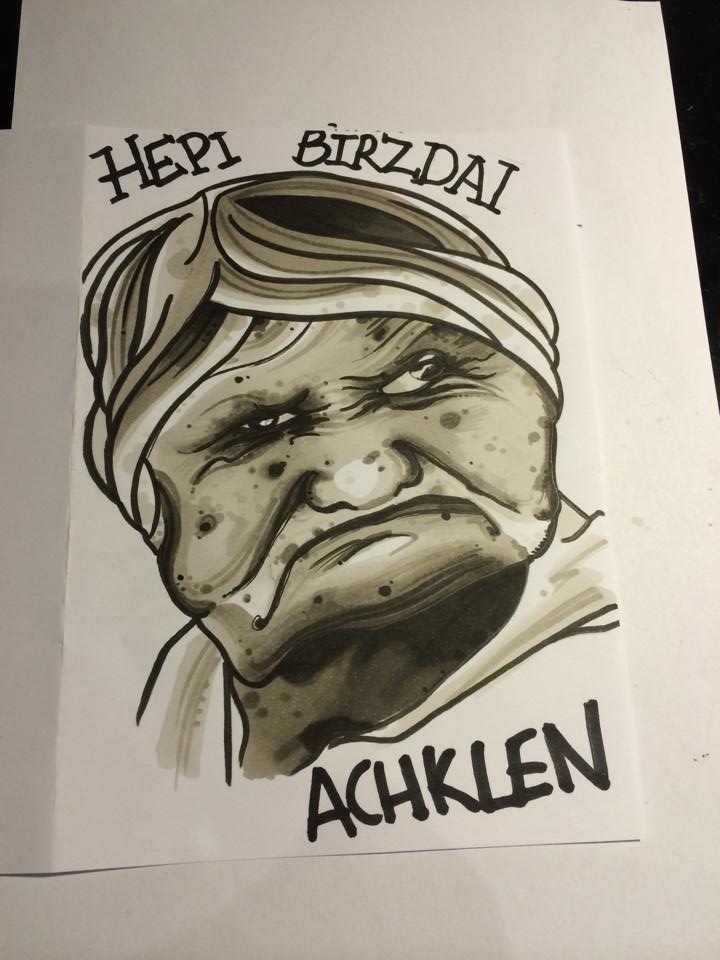 HEPI BIRZDAI
ACHKLEN